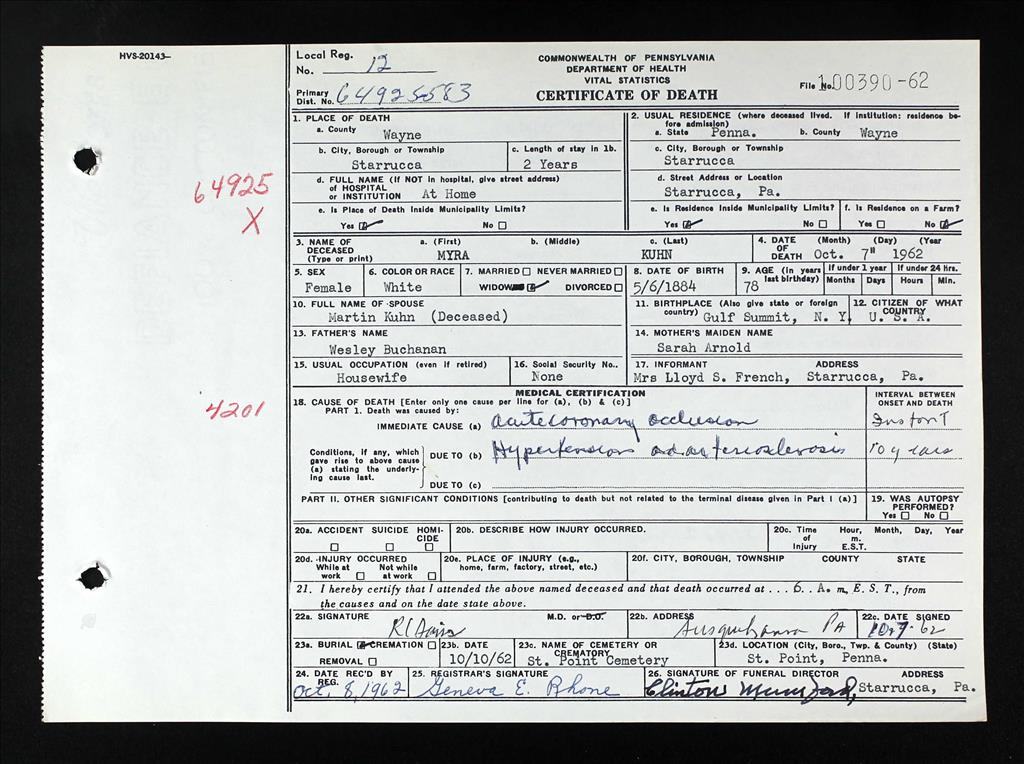 HVS-20143
Local Reg. No. 12
Primary Dist. No. 64925583
COMMONWEALTH OF PENNSYLVANIA
DEPARTMENT OF HEALTH
VITAL STATISTICS
CERTIFICATE OF DEATH
File No. 100390-62
64925
X
4201
1. PLACE OF DEATH
a. County Wayne
b. City, Borough or Township Starrucca
c. Length of stay in 1b. 2 Years
d. FULL NAME (If NOT in hospital, give street address) of HOSPITAL or INSTITUTION At Home
e. Is Place of Death Inside Municipality Limits?
Yes No
2. USUAL RESIDENCE (where deceased lived. If institution: residence before admission)
a. State Penna. b. County Wayne
c. City, Borough or Township
Starrucca
d. Street Address or Location
Starrucca, Pa.
e. Is Residence Inside Municipality Limits? f. Is Residence on a Farm?
Yes No Yes No
3. NAME OF DECEASED (Type or print) a. (First) b. (Middle) c. (Last)
MYRA KUHN
4. DATE OF DEATH (Month) (Day) (Year
Oct. 7" 1962
5. SEX Female
6. COLOR OR RACE White
7. MARRIED NEVER MARRIED
WIDOWED DIVORCED
8. DATE OF BIRTH 5/6/1884
9. AGE (in years last birthday) 78
If under 1 year If under 24 Hrs.
Months Days Hours Min.
10. FULL NAME OF SPOUSE
Martin Kuhn (Deceased)
11. BIRTHPLACE (Also give state or foreign country) Gulf Summit, N. Y.
12. CITIZEN OF WHAT COUNTRY U. S. A.
13. FATHER'S NAME
Wesley Buchanan
14. MOTHER'S MAIDEN NAME
Sarah Arnold
15. USUAL OCCUPATION (even if retired)
Housewife
16. Social Security No..
None
17. INFORMANT ADDRESS
Mrs Lloyd S. French, Starrucca, Pa.
MEDICAL CERTIFICATION
18. CAUSE OF DEATH [Enter only one cause per line for (a), (b) & (c)]
PART 1. Death was caused by:
IMMEDIATE CAUSE (a) acute coronary occlusion
INTERVAL BETWEEN ONSET AND DEATH
Instant
Conditions, if any, which gave rise to above cause (a) stating the underlying cause last.
DUE TO (b) Hypertension arteriosclerosis 10 years
DUE TO (c)
PART II. OTHER SIGNIFICANT CONDITIONS [contributing to death but not related to the terminal disease given in Part I (a)]
19. WAS AUTOPSY PERFORMED?
Yes No
20a. ACCIDENT SUICIDE HOMICIDE
20b. DESCRIBE HOW INJURY OCCURRED.
20c. Time of Injury Hour, Month, Day, Year
m. E.S.T.
20d. INJURY OCCURRED
While at work Not while at work
20e. PLACE OF INJURY (e.g., home, farm, factory, street, etc.)
20f. CITY, BOROUGH, TOWNSHIP COUNTY STATE
21. I hereby certify that I attended the above named deceased and that death occurred at ...6. A. m, E. S. T., from
the causes and on the date state above.
22a. SIGNATURE M.D. or D.O.
R C Davis
22b. ADDRESS
Susquehanna PA
22c. DATE SIGNED
10-7-62
23a. BURIAL CREMATION
REMOVAL
23b. DATE
10/10/62
23c. NAME OF CEMETERY OR CREMATORY
St. Point Cemetery
23d. LOCATION (City, Boro., Twp. & County) (State)
St. Point, Penna.
24. DATE REC'D BY REG.
Oct. 8, 1962
25. REGISTRAR'S SIGNATURE
Geneva E. Rhone
26. SIGNATURE OF FUNERAL DIRECTOR ADDRESS
Clinton Mumford, Starrucca, Pa.